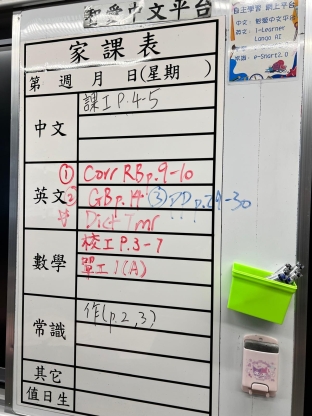 智愛中文平台
家課表
第 週 月 日(星期 )
中文
課工P.4-5
英文
① Corr RB p.9-10
② GB p.14 ③ PD p.29-30
Dict Tmr
數學
校工P.3-7
單工1(A)
常識
作(p.2,3)
其它
值日生
自主學習 網上平台
中文: 智愛中文平台
英文: i-Learner
Lango AI
常識: e-Smart2.0